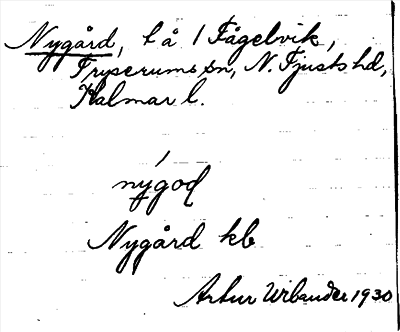 Nygård, t å 1 Fågelvik,
Tryserums sn, N. Tjusts hd,
Kalmar l.
nygoḍ
Nygård kb
Artur Urbander 1930